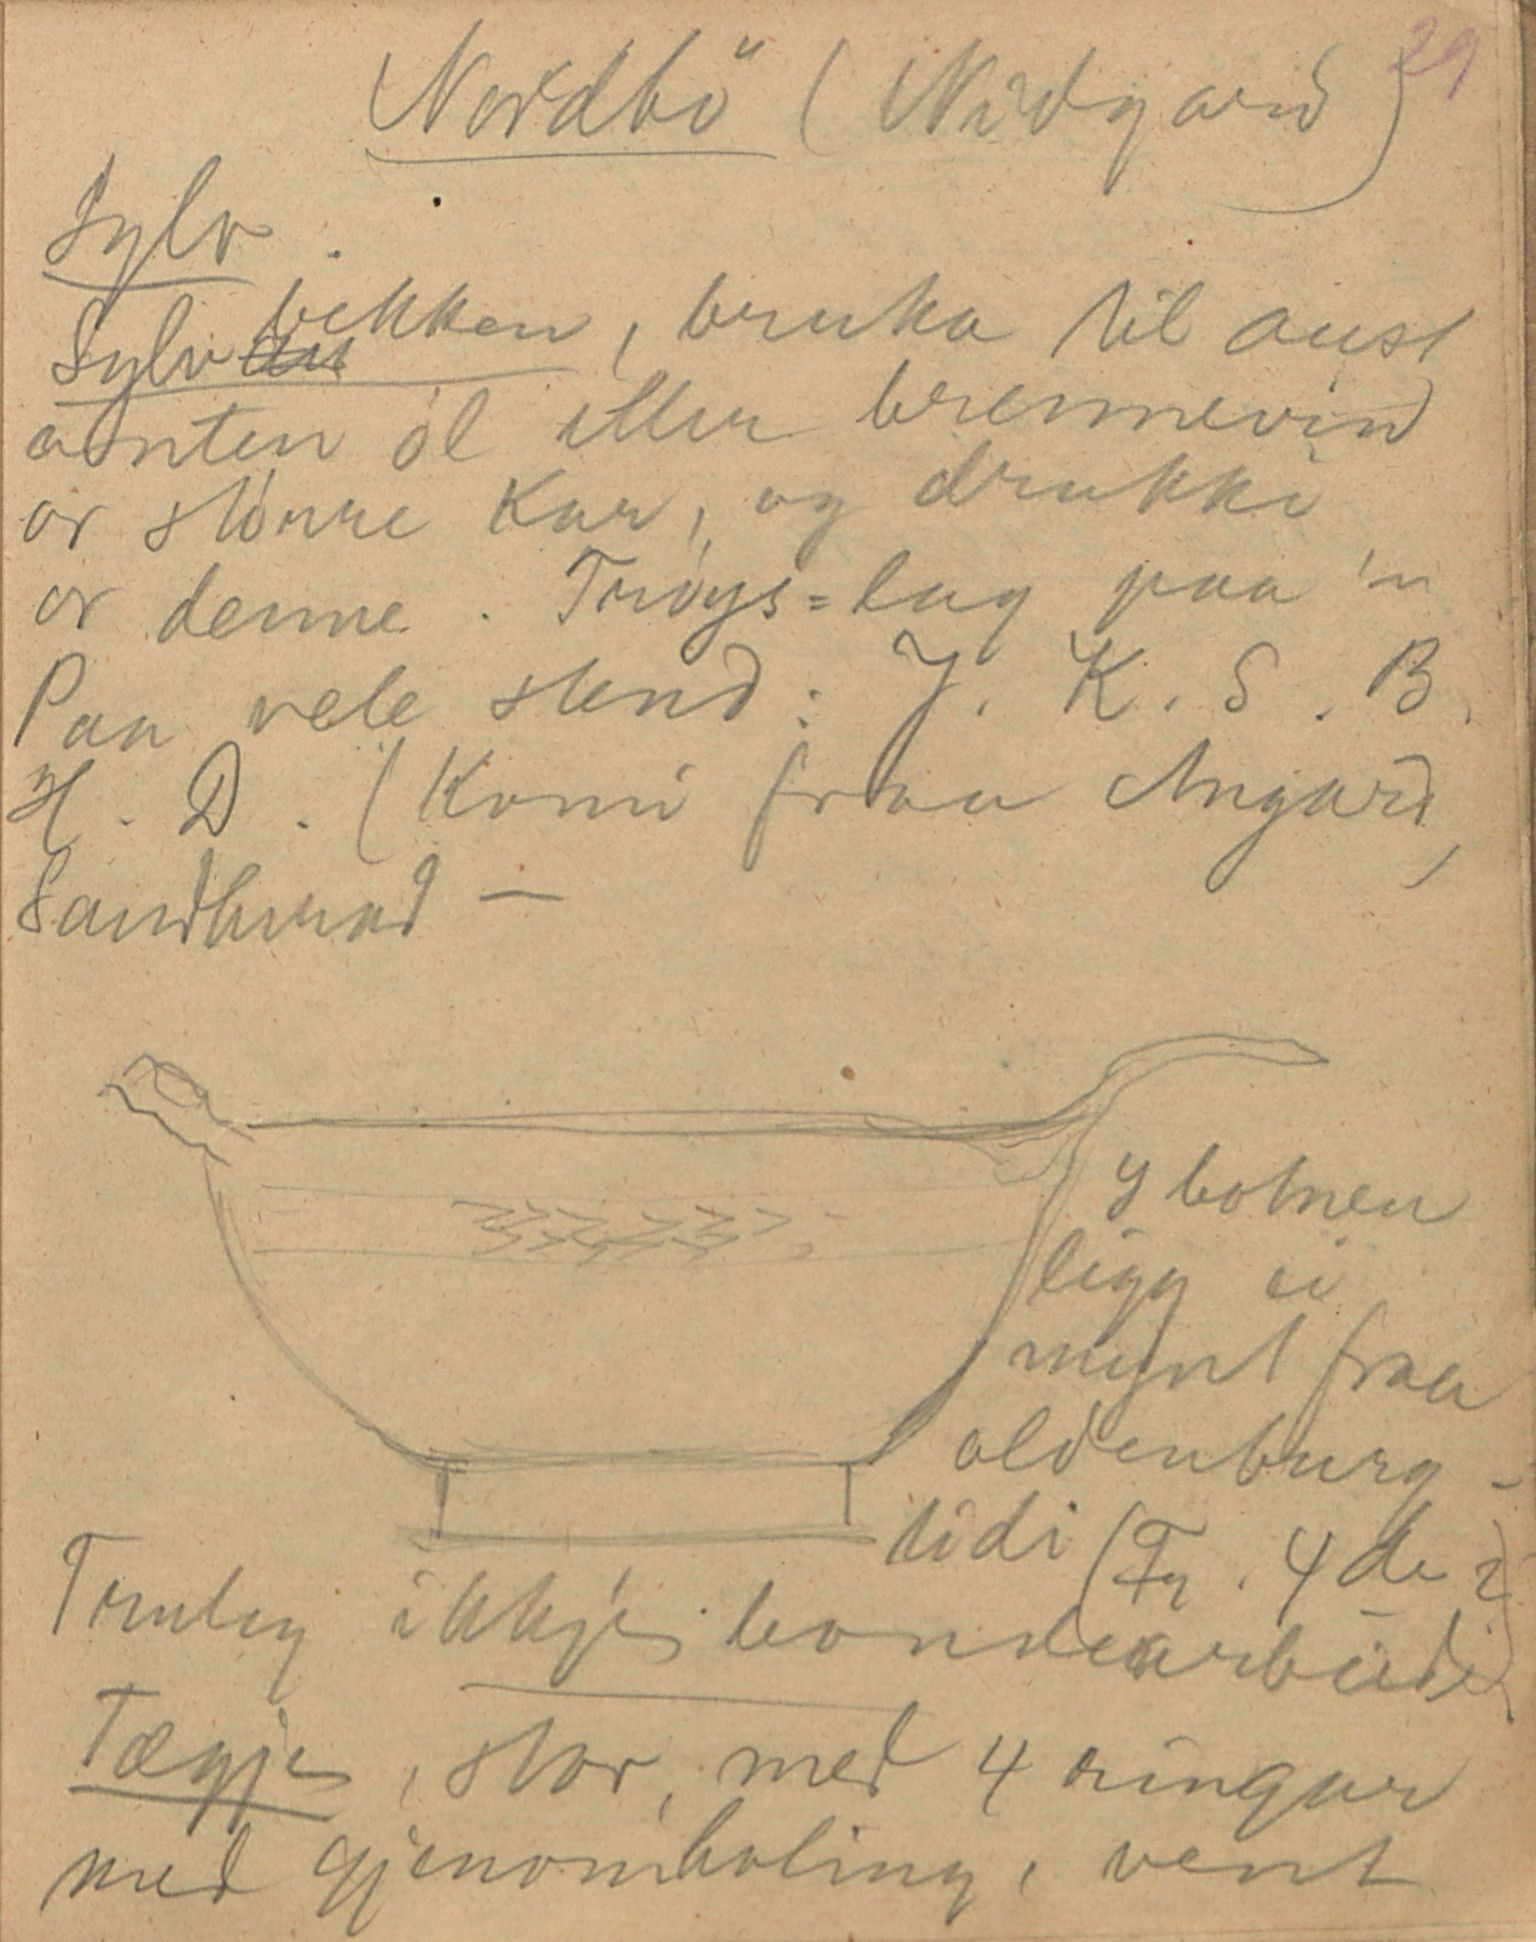 29
Nordbö (Nidgard)
Sylv.
Sylvbekken, bruka til aust
anten øl eller brennevin
or större Kar, og drukke
or denne. Trøys=lag paa 'n
Paa vele stend: J. K. S. B.
H. D. (Komi fraa Angard,
Sandherad —
Y botnen
ligg ei
mynt fraa
oldenburg-
tidi (Fr. 4de?)
Truleg ikkje bondearbeide
Tægje, stor, med 4 ringar
med gjenomholing, vent